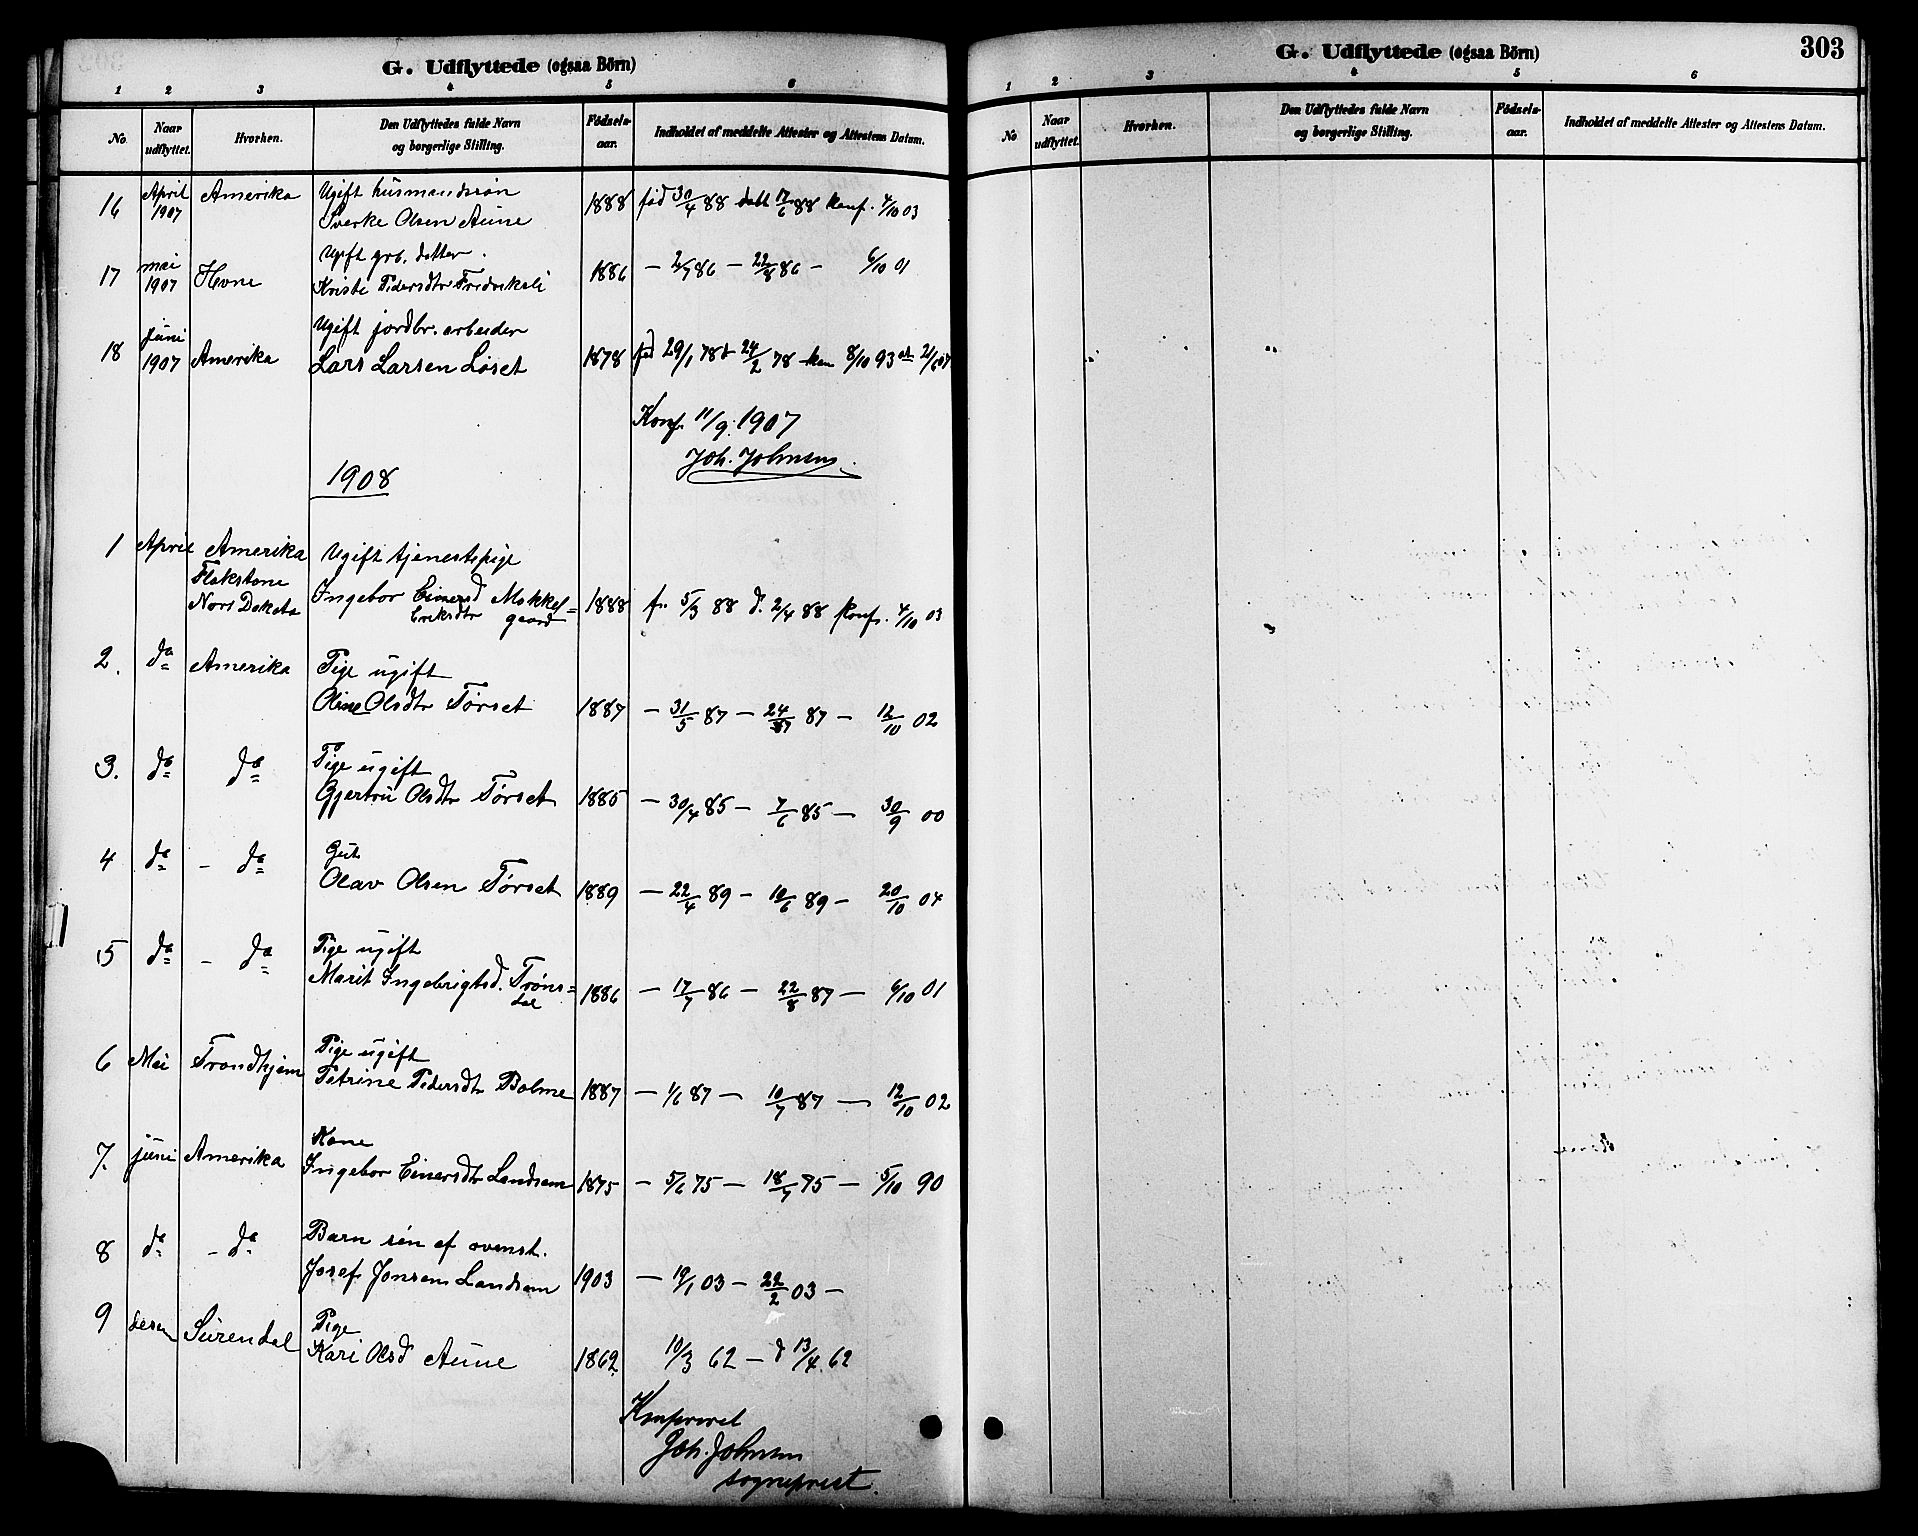 G. Udflyttede (ogsaa Börn)
1 2 3 4 5 6
No. Naar udflyttet. Hvorhen. Den Udflyttedes fulde Navn og borgerlige Stilling. Fødsels-aar. Indholdet af meddelte Attester og Attestens Datum.
Ugift husmandssøn
16 April 1907 Amerika Sverke Olsen Aune 1888 fød 30/4 88 døbt 17/6 88 konf. 4/10 03
Ugift grb. datter.
17 mai 1907 Hevne Kristi Pedersdtr Fredriksli 1886 — 2/7 86 — 22/8 86 — 6/10 01
Ugift jordbr. arbeider
18 Juni 1907 Amerika Lars Larsen Løset 1878 fød 29/1 78 d 24/2 78 kon 8/10 93 at 2/6 07
Konf. 11/9. 1907
Joh. Johnsen.
1908
1 April Amerika Ugift tjenestepige
Flakstone
Nors Dakota Ingebor Einersd Mokkel= 1888 f. 5/3 88 d. 2/4 88 Konf. 4/10 03
Eriksdtr gaard
2. do Amerika Pige ugift
Oline Olsdtr Tørset 1887 — 31/5 87 — 24/7 87 — 12/10 02
3. do do Pige ugift
Gjertru Olsdtr Tørset 1885 — 30/4 85 — 7/6 85 — 30/9 00
4 do – do Gut
Olav Olsen Tørset 1889 — 22/4 89 — 10/6 89 — 20/10 04
5 do – do Pige ugift
Marit Ingebrigtsd. Trøns= 1886 — 17/7 86 — 22/8 87 — 6/10 01
dal
6 Mai Trondhjem Pige ugift
Petrine Pedersdtr Bolme 1887 — 1/6 87 — 10/7 87 — 12/10 02
7. juni Amerika Kone
Ingebor Einersdtr Landsem 1875 — 5/6 75 — 18/7 75 — 5/10 90
8 do – do Barn søn af ovenst.
Josef Jonsen Landsem 1903 — 19/1 03 — 22/2 03 —
9 desem Surendal Pige
Kari Olsd Aune 1862. 10/3 62 — d 13/4. 62
Konfereret
Joh. Johnsen
sogneprest.
G. Udflyttede (ogsaa Börn) 303
1 2 3 4 5 6
No Naar udflyttet. Hvorhen. Den Udflyttedes fulde Navn og borgerlige Stilling. Fødsels-aar. Indholdet af meddelte Attester og Attestens Datum.